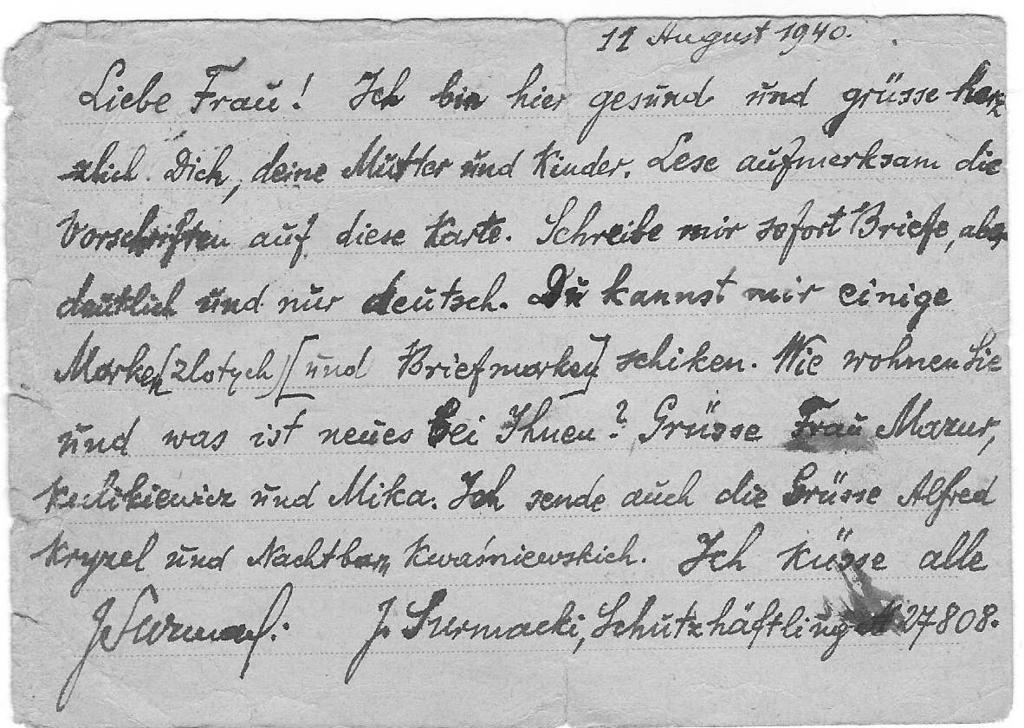 11 August 1940.
Liebe Frau! Ich bin hier gesund und grüsse herz
zlich Dich, deine Mutter und Kinder. Lese aufmerksam die
Vorschriften auf diese Karte. Schreibe mir sofort Briefe, aber
deutlich und nur deutsch. Du kannst mir einige
Marken (zlotych) [und Briefmarken] schiken. Wie wohnen Sie
und was ist neues bei Ihnen? Grüsse Frau Mazur,
Kulikiewicz und Mika. Ich sende auch die Grüsse Alfred
Kryzel und Nachtbarn Kwaśniewskich. Ich küsse alle
J. Surmacki, Schutzhäftling № 27808.